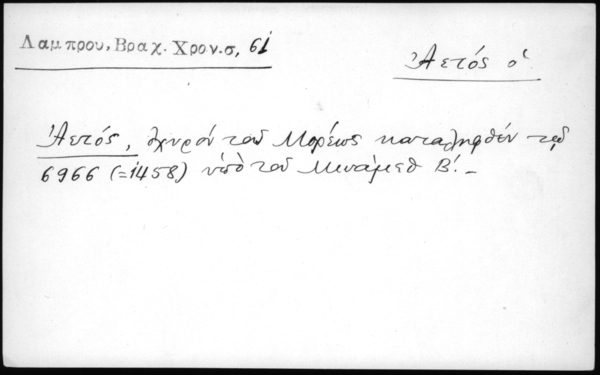 Λαμπρου, Βραχ. Χρον. σ, 61
Ἀετός ὁ
Ἀετός, ὀχυρόν τοῦ Μορέως καταληφθέν τῷ
6966 (=1458) ὑπὸ τοῦ Μωάμεθ Β'.-